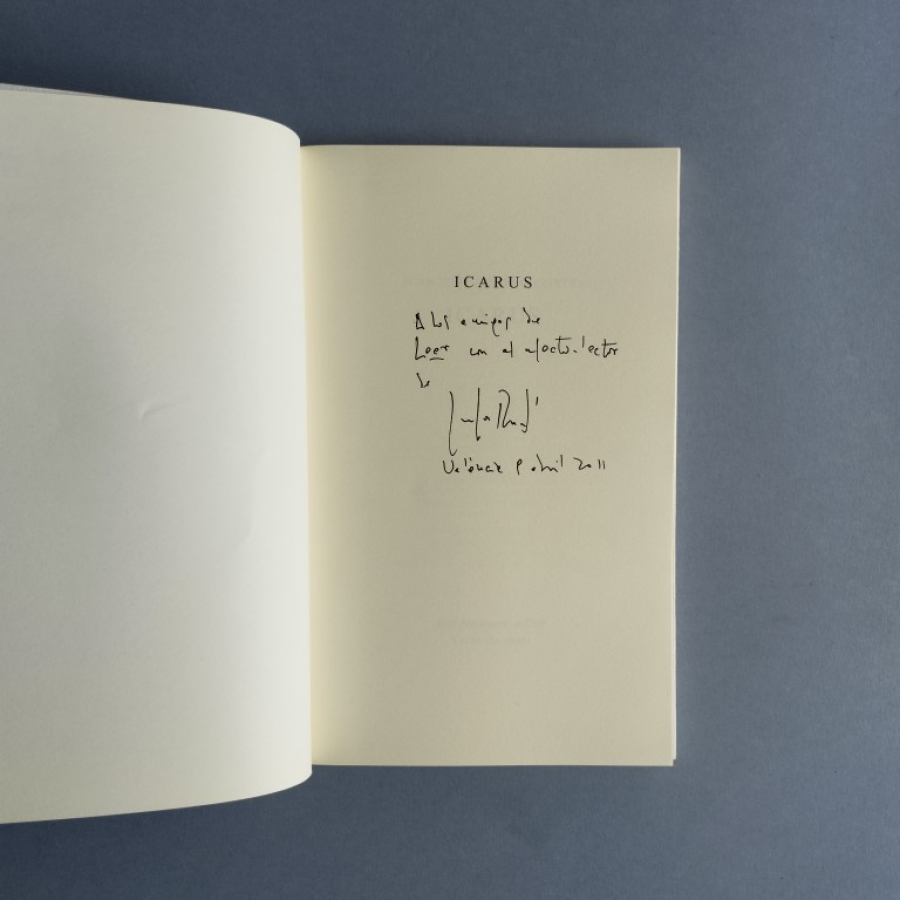 ICARUS
A los amigos de
Leer con el afecto lector
de
València 8 abril 2011